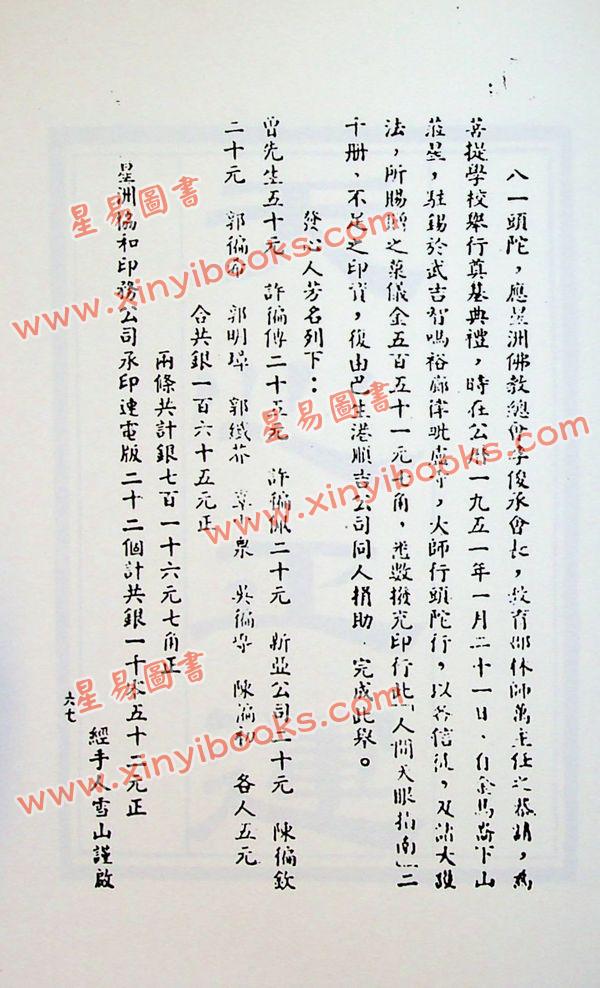 八一頭陀,應星洲佛教總會李俊承會長,教育部休師萬主任之恭請,為
菩提學校舉行奠基典禮,時在公曆一九五一年一月二十一日,自金馬崙下山
蒞星,駐錫於武吉智嗎裕廊律毗盧寺,大師行頭陀行,以各信徒,及諸大護
法,所賜贈之菓儀金五百五十一元七角,悉數撥充印行此「人間天眼指南」二
千册,不足之印資,復由巴生港順吉公司同人捐助,完成此舉。
發心人芳名列下:
曾先生五十元 許徧傳二十五元 許徧佩二十元 新亞公司二十元 陳徧欽
二十元 郭徧布 郭明璋 郭纖芥 泉 吳徧 陳徧和 各人五元
合共銀一百六十五元正
兩條共計銀七百一十六元七角正
星洲協和印務公司承印連電版二十二個計共銀一千零五十二元正
經手人雪山謹啟
六七
星易圖書
www.xinyibooks.com
星易圖書
www.xinyibooks.com
星易圖書
www.xinyibooks.com